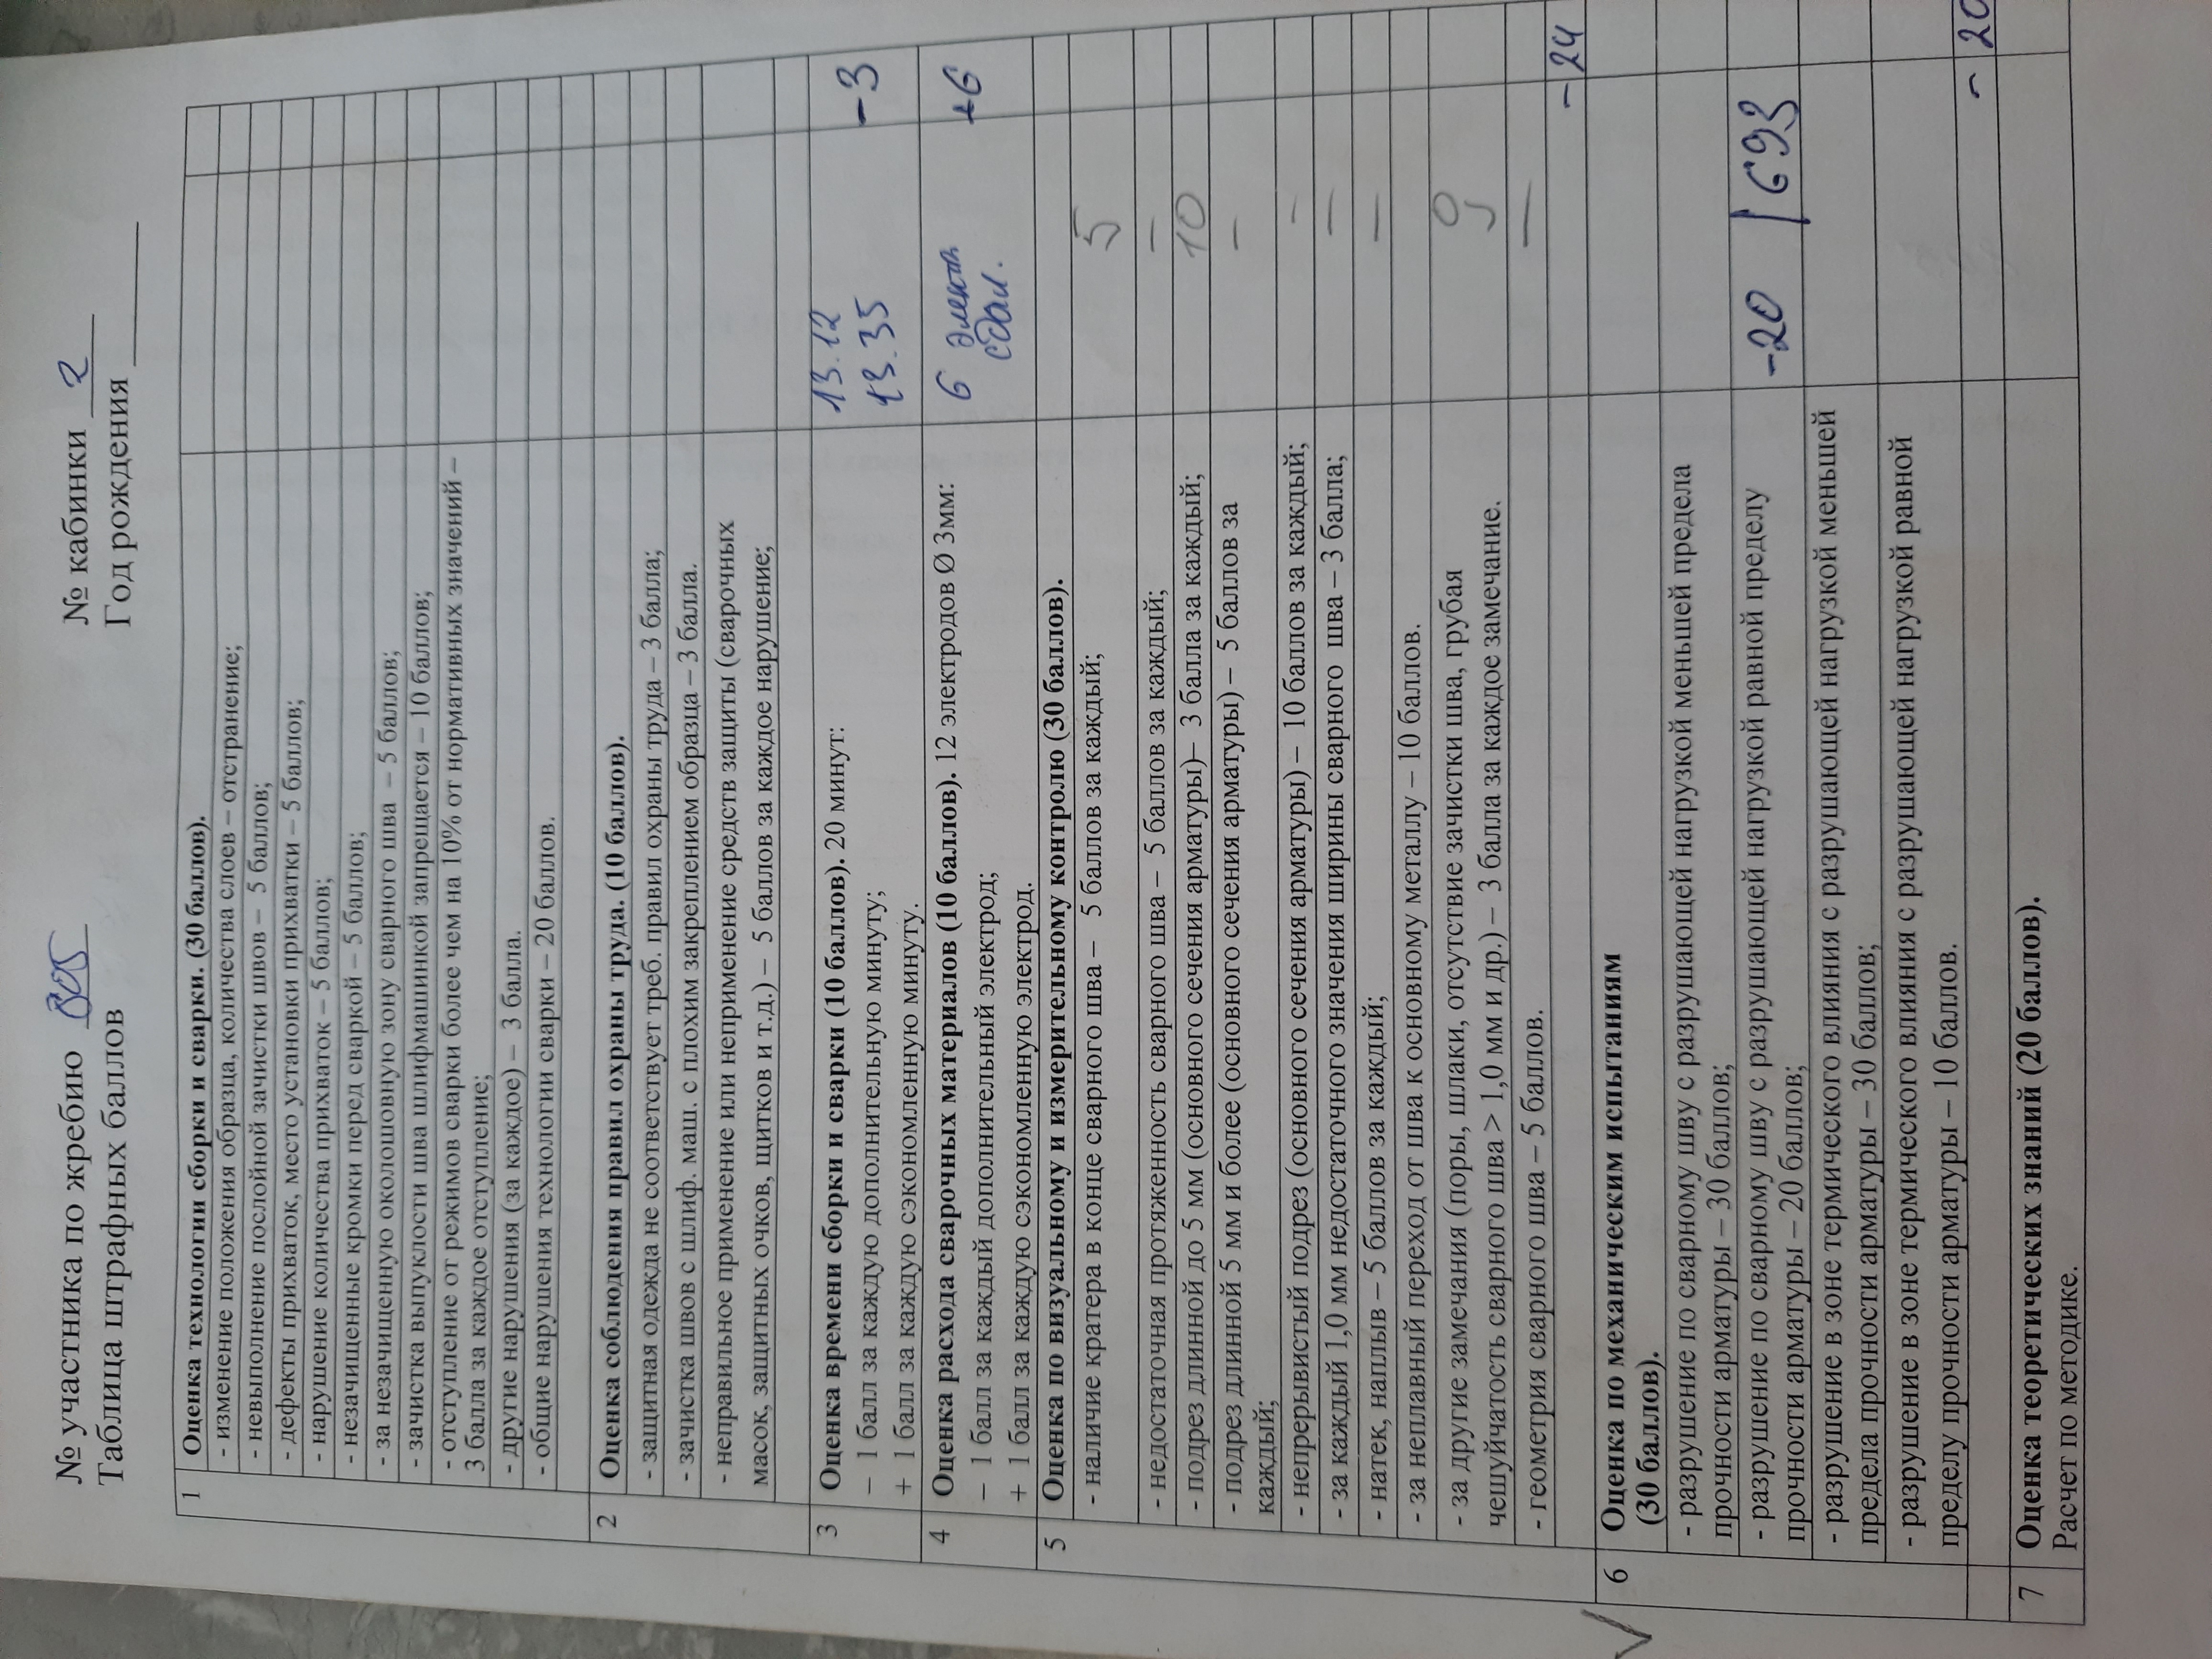 № участника по жребию 805 № кабинки 2
Таблица штрафных баллов Год рождения
1 Оценка технологии сборки и сварки. (30 баллов).
- изменение положения образца, количества слоев – отстранение;
- невыполнение послойной зачистки швов – 5 баллов;
- дефекты прихваток, место установки прихватки – 5 баллов;
- нарушение количества прихваток – 5 баллов;
- незачищенные кромки перед сваркой – 5 баллов;
- за незачищенную околошовную зону сварного шва – 5 баллов;
- зачистка выпуклости шва шлифмашинкой запрещается – 10 баллов;
- отступление от режимов сварки более чем на 10% от нормативных значений –
3 балла за каждое отступление;
- другие нарушения (за каждое) – 3 балла.
- общие нарушения технологии сварки – 20 баллов.
2 Оценка соблюдения правил охраны труда. (10 баллов).
- защитная одежда не соответствует треб. правил охраны труда – 3 балла;
- зачистка швов с шлиф. маш. с плохим закреплением образца – 3 балла.
- неправильное применение или неприменение средств защиты (сварочных
масок, защитных очков, щитков и т.д.) – 5 баллов за каждое нарушение;
3 Оценка времени сборки и сварки (10 баллов). 20 минут: 13.12
– 1 балл за каждую дополнительную минуту; 13.35 -3
+ 1 балл за каждую сэкономленную минуту.
4 Оценка расхода сварочных материалов (10 баллов). 12 электродов Ø 3мм: 6 +6
– 1 балл за каждый дополнительный электрод; сдал.
+ 1 балл за каждую сэкономленную электрод.
5 Оценка по визуальному и измерительному контролю (30 баллов).
- наличие кратера в конце сварного шва – 5 баллов за каждый; 5
- недостаточная протяженность сварного шва – 5 баллов за каждый; —
- подрез длинной до 5 мм (основного сечения арматуры)– 3 балла за каждый; 10
- подрез длинной 5 мм и более (основного сечения арматуры) – 5 баллов за —
каждый;
- непрерывистый подрез (основного сечения арматуры) – 10 баллов за каждый; —
- за каждый 1,0 мм недостаточного значения ширины сварного шва – 3 балла; —
- натек, наплыв – 5 баллов за каждый; —
- за неплавный переход от шва к основному металлу – 10 баллов.
- за другие замечания (поры, шлаки, отсутствие зачистки шва, грубая
чешуйчатость сварного шва > 1,0 мм и др.) – 3 балла за каждое замечание.
- геометрия сварного шва – 5 баллов. —
- 24
6 Оценка по механическим испытаниям
(30 баллов).
- разрушение по сварному шву с разрушающей нагрузкой меньшей предела
прочности арматуры – 30 баллов;
- разрушение по сварному шву с разрушающей нагрузкой равной пределу -20 | 693
прочности арматуры – 20 баллов;
- разрушение в зоне термического влияния с разрушающей нагрузкой меньшей
предела прочности арматуры – 30 баллов;
- разрушение в зоне термического влияния с разрушающей нагрузкой равной
пределу прочности арматуры – 10 баллов.
- 20
7 Оценка теоретических знаний (20 баллов).
Расчет по методике.